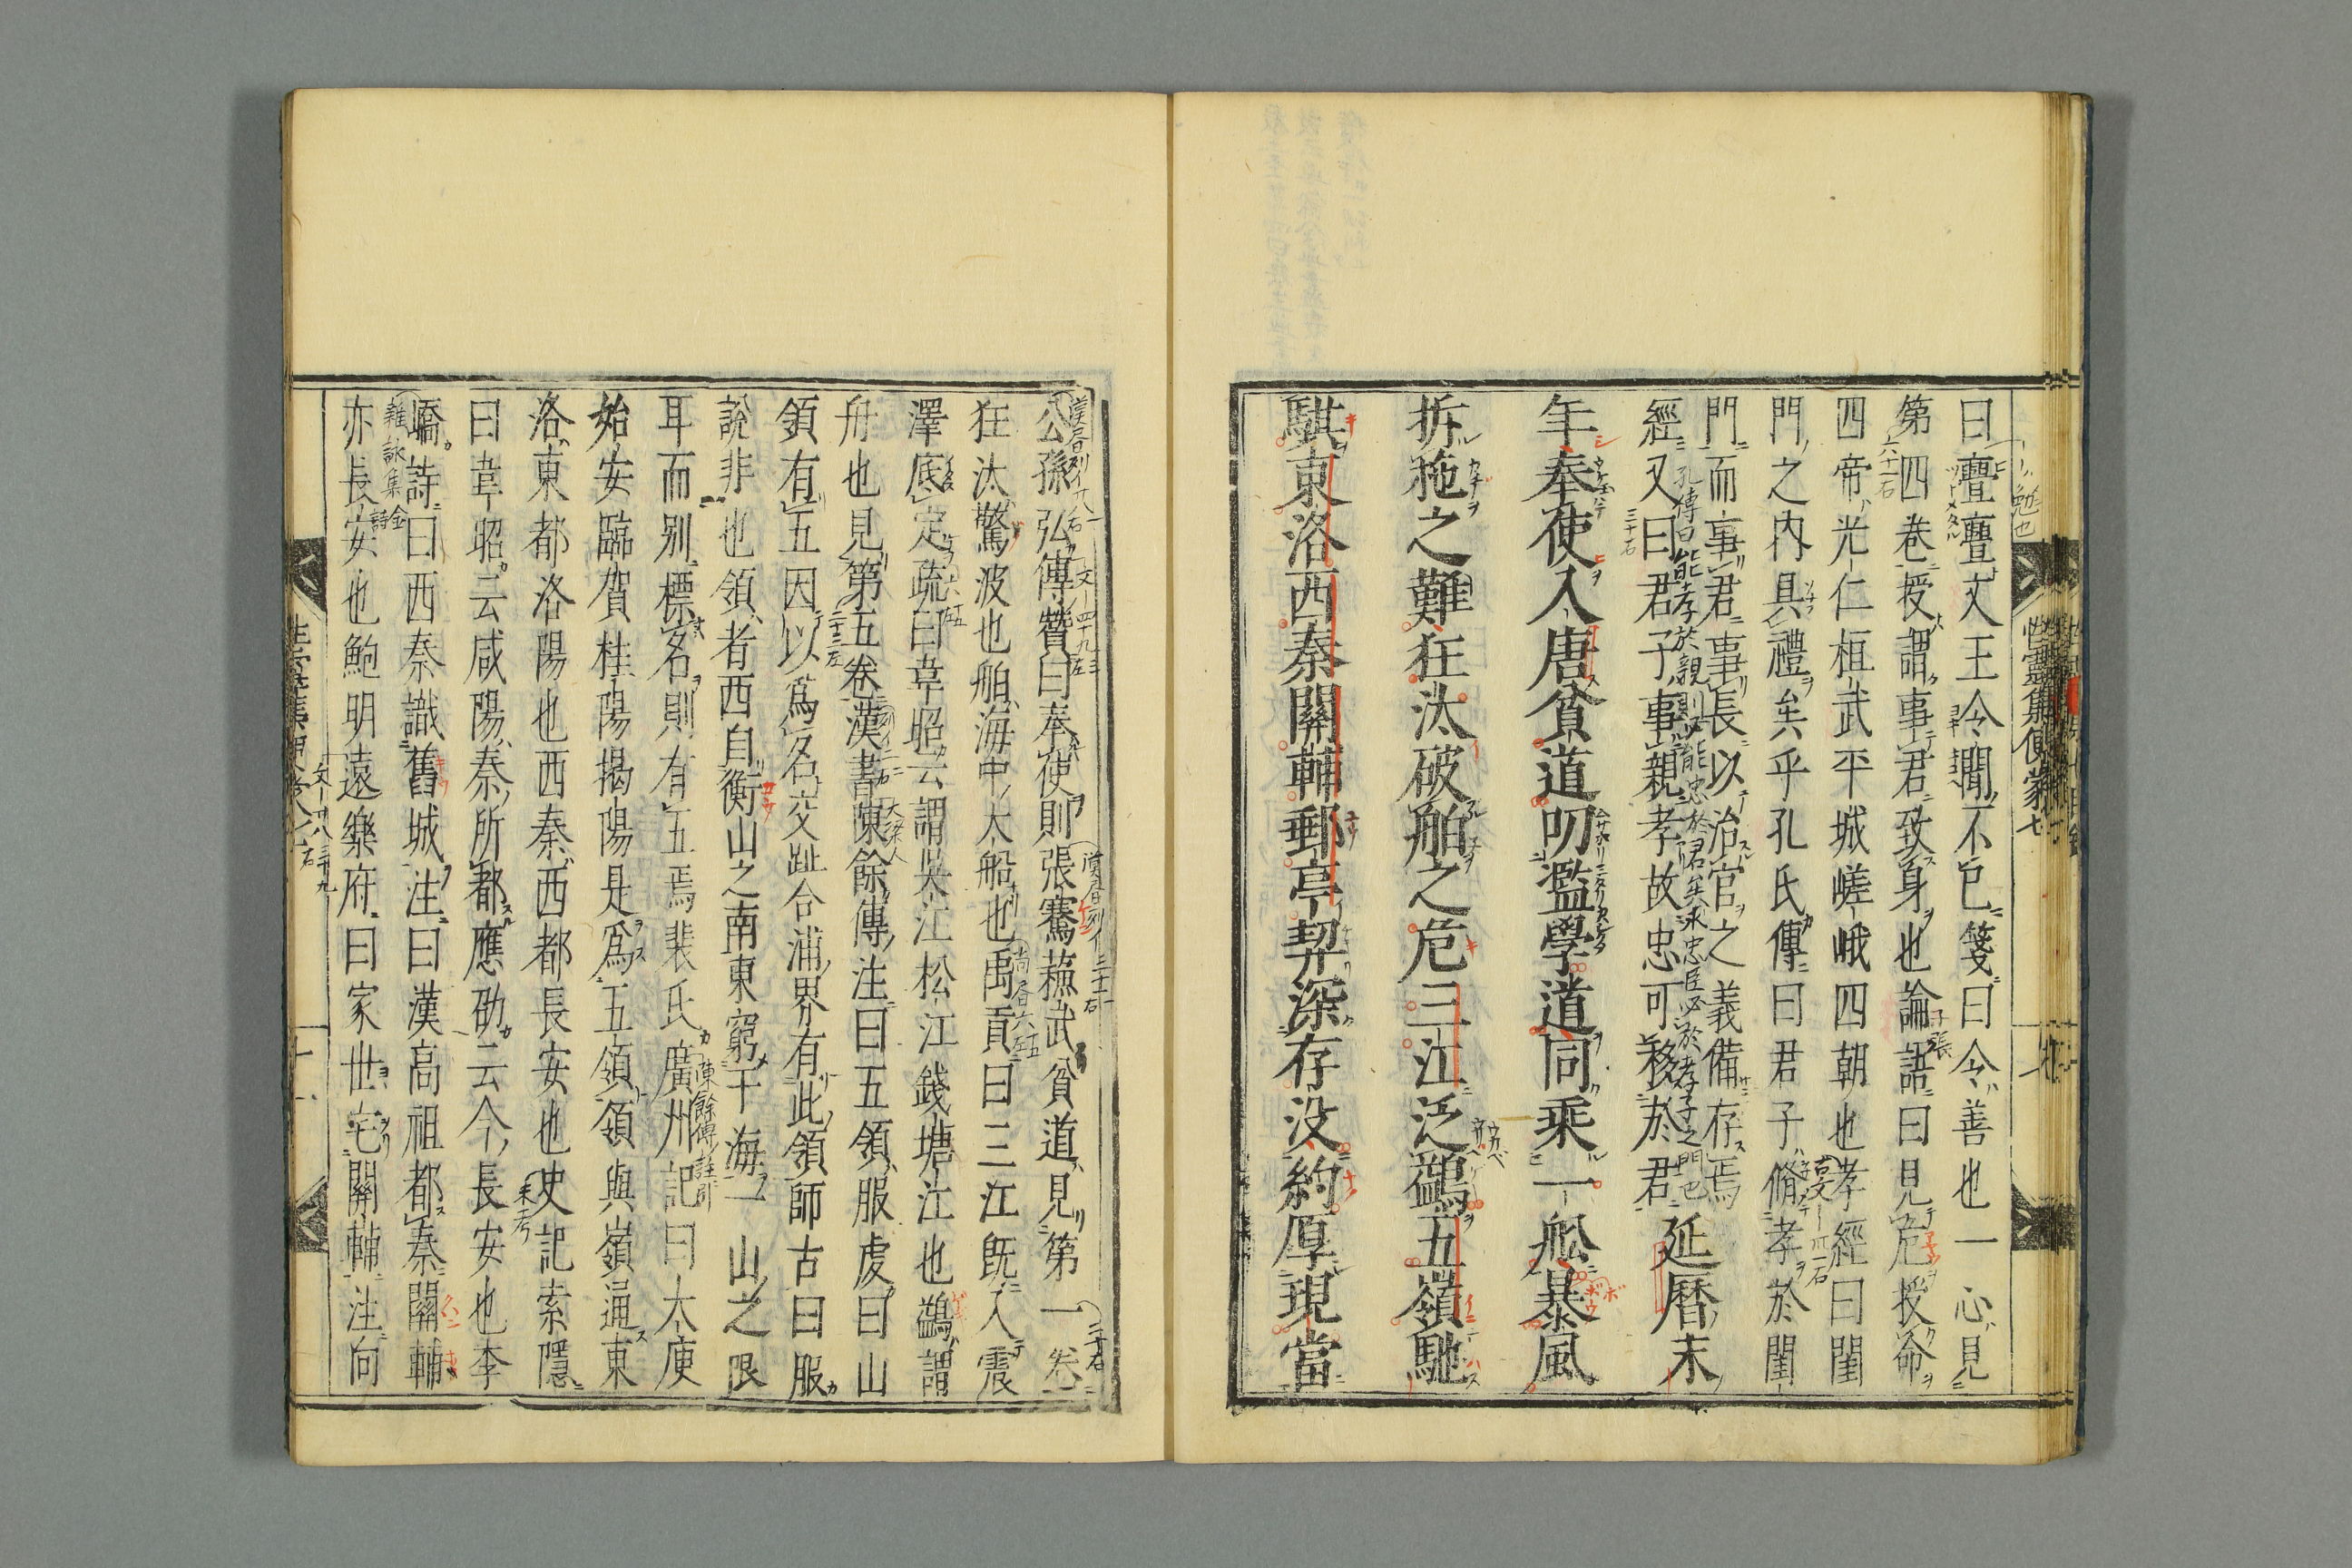 曰亹亹文王令聞不已箋曰令善也一心見
第四卷授謂事君致身也論語曰見危授命
四帝光仁桓武平城嵯峨四朝也孝經曰閨
門之內具禮矣乎孔氏傳曰君子脩孝於閨
門而事君事長以治官之義備存焉
經又曰君子事親孝故忠可移於君
延曆末
年奉使入唐貧道叨濫學道同乘一舩暴風
拆拖之難狂汰破舶之危三江泛鷁五嶺馳
騏東洛西秦關輔郵亭契深存沒約厚現當
性靈集便蒙七
公孫弘傳贊曰奉使則張騫蘓武貧道見第一卷
狂汰驚波也舶海中大船也禹貢曰三江既入震
澤底定疏曰韋昭云謂吳江松江錢塘江也鷁謂
舟也見第五卷漢書陳餘傳注曰五領服虔曰山
領有五因以爲名交趾合浦界有此領師古曰服
說非也領者西自衡山之南東窮于海一山之限
耳而別標名則有五焉裴氏廣州記曰大庾
始安臨賀桂陽揭陽是爲五領領與嶺通東
洛東都洛陽也西秦西都長安也史記索隱
曰韋昭云咸陽秦所都應劭云今長安也李
嶠詩曰西秦識舊城注曰漢高祖都秦關輔
亦長安也鮑明遠樂府曰家世宅關輔注向